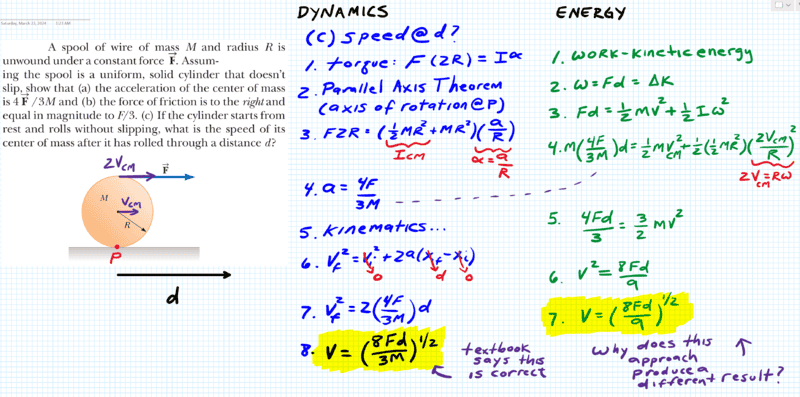 Saturday, March 23, 2024 5:23 AM
A spool of wire of mass M and radius R is
unwound under a constant force F⃗. Assum-
ing the spool is a uniform, solid cylinder that doesn't
slip, show that (a) the acceleration of the center of mass
is 4F⃗/3M and (b) the force of friction is to the right and
equal in magnitude to F/3. (c) If the cylinder starts from
rest and rolls without slipping, what is the speed of its
center of mass after it has rolled through a distance d?
2V_CM
F⃗
M
V_CM
R
P
d
DYNAMICS
(c) speed@d?
1. torque: F(2R) = Iα
2. Parallel Axis Theorem
(axis of rotation @ P)
3. F2R = (½MR² + MR²)(a/R)
I_CM
α = a/R
4. a = 4F/3M
5. Kinematics...
6. V_f² = V_i² + 2a(x_f - x_i)
0 d 0
7. V_f² = 2(4F/3M)d
8. V = (8Fd/3M)^1/2
textbook
says this
is correct
ENERGY
1. WORK-Kinetic energy
2. W = Fd = ΔK
3. Fd = ½mv² + ½Iω²
4. M(4F/3M)d = ½MV_CM² + ½(½MR²)(2V_CM/R)²
2V_CM = Rω
5. 4Fd/3 = 3/2 mv²
6. V² = 8Fd/9
7. V = (8Fd/9)^1/2
Why does this
approach
produce a
different result?